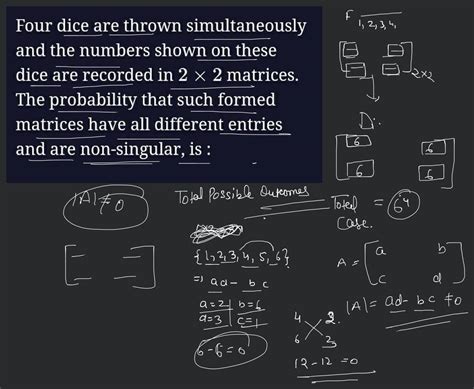 Four dice are thrown simultaneously
and the numbers shown on these
dice are recorded in 2 × 2 matrices.
The probability that such formed
matrices have all different entries
and are non-singular, is :
F 1, 2, 3, 4,
2×2
D:
6 6
6 6
|A| ≠ 0
Total Possible Outcomes
Total Case. = 6⁴
{1, 2, 3, 4, 5, 6}
⇒ ad - bc
a=2 | b=6
a=3 | c=1
6-6=0
A = [a b
c d]
|A| = ad - bc ≠ 0
4 2
6 3
12-12=0